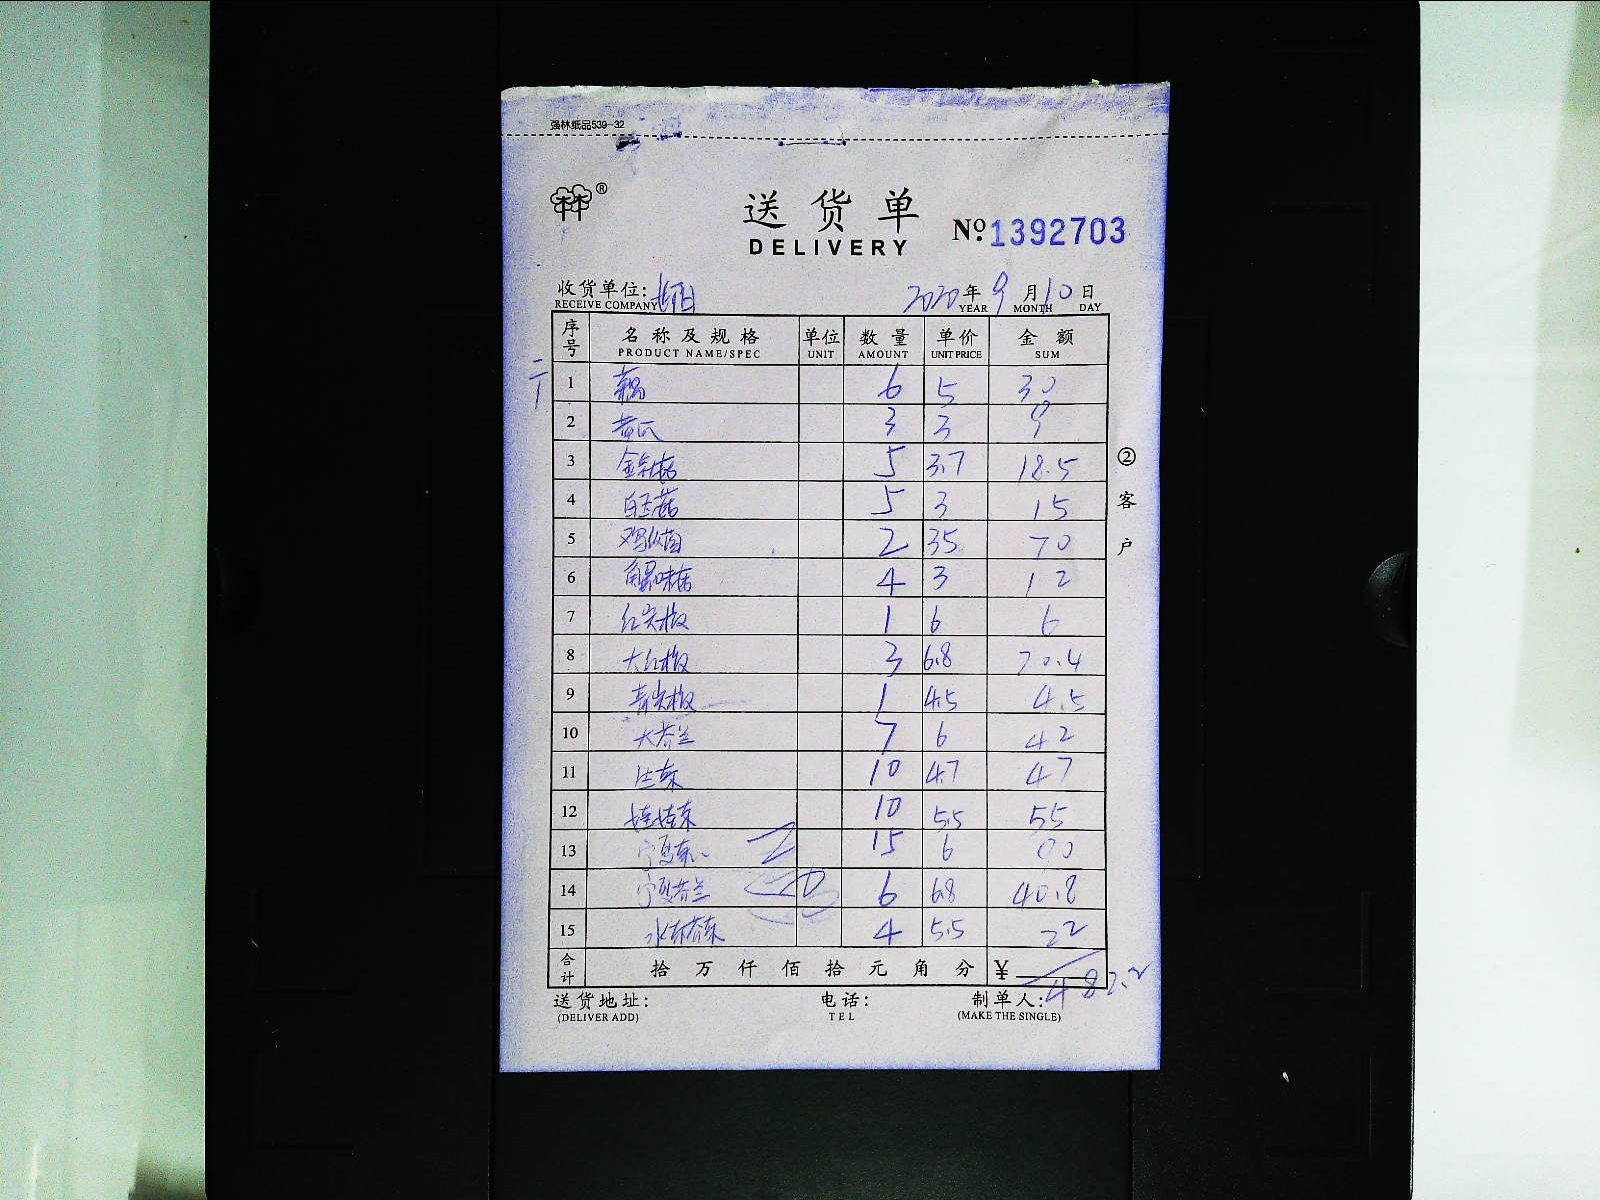 强林纸品539-32
送货单
DELIVERY
№ 1392703
收货单位:
RECEIVE COMPANY
2020年9月10日
YEAR MONTH DAY
序号 名称及规格 单位 数量 单价 金额
PRODUCT NAME/SPEC UNIT AMOUNT UNIT PRICE SUM
1 藕 6 5 30
2 黄瓜 3 3 9
3 金针菇 5 3.7 18.5
4 白玉菇 5 3 15
5 鸡枞菌 2 35 70
6 蟹味菇 4 3 12
7 红尖椒 1 6 6
8 大红椒 3 6.8 20.4
9 青尖椒 1 4.5 4.5
10 大芥兰 7 6 42
11 生菜 10 4.7 47
12 娃娃菜 10 5.5 55
13 宁夏菜心 15 6 90
14 宁夏芥兰 6 6.8 40.8
15 4 5.5 22
合计 拾万仟佰拾元角分 ¥ 482.2
②客户
送货地址: 电话: 制单人:
(DELIVER ADD) TEL (MAKE THE SINGLE)